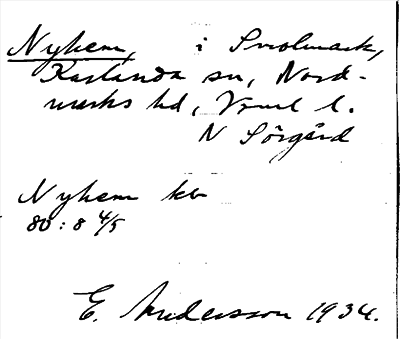 Nyhem, i Svolmark,
Karlanda sn, Nord-
marks hd, Vrml l.
N Sörgård
Nyhem kb
80:8 4/5
E. Andersson 1934.